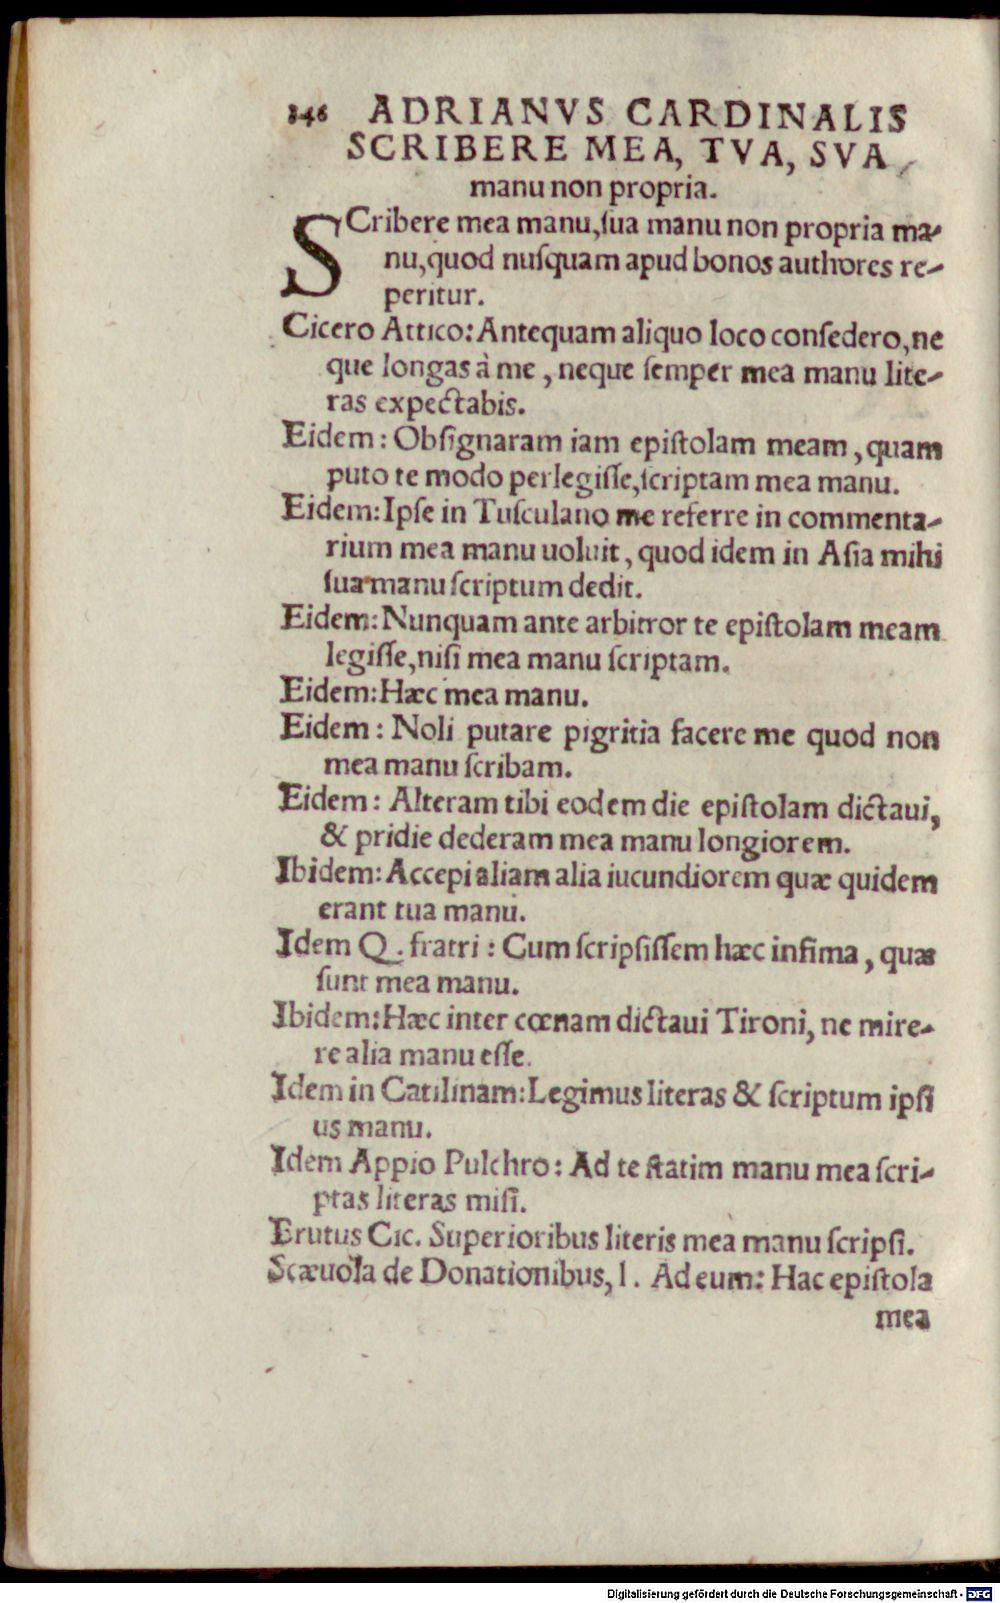 346 ADRIANVS CARDINALIS
SCRIBERE MEA, TVA, SVA
manu non propria.
SCribere mea manu, ſua manu non propria ma-
nu, quod nuſquam apud bonos authores re-
peritur.
Cicero Attico: Antequam aliquo loco conſedero, ne
que longas à me, neque ſemper mea manu lite-
ras expectabis.
Eidem: Obſignaram iam epiſtolam meam, quam
puto te modo perlegiſſe, ſcriptam mea manu.
Eidem: Ipſe in Tuſculano me referre in commenta-
rium mea manu uoluit, quod idem in Aſia mihi
ſua manu ſcriptum dedit.
Eidem: Nunquam ante arbitror te epiſtolam meam
legiſſe, niſi mea manu ſcriptam.
Eidem: Hæc mea manu.
Eidem: Noli putare pigritia facere me quod non
mea manu ſcribam.
Eidem: Alteram tibi eodem die epiſtolam dictaui,
& pridie dederam mea manu longiorem.
Ibidem: Accepi aliam alia iucundiorem quæ quidem
erant tua manu.
Idem Q. fratri: Cum ſcripſiſſem hæc infima, quæ
ſunt mea manu.
Ibidem: Hæc inter cœnam dictaui Tironi, ne mire-
re alia manu eſſe.
Idem in Catilinam: Legimus literas & ſcriptum ipſi
us manu.
Idem Appio Pulchro: Ad te ſtatim manu mea ſcri-
ptas literas miſi.
Brutus Cic. Superioribus literis mea manu ſcripſi.
Scæuola de Donationibus, l. Ad eum: Hac epiſtola
mea
Digitalisierung gefördert durch die Deutsche Forschungsgemeinschaft - DFG